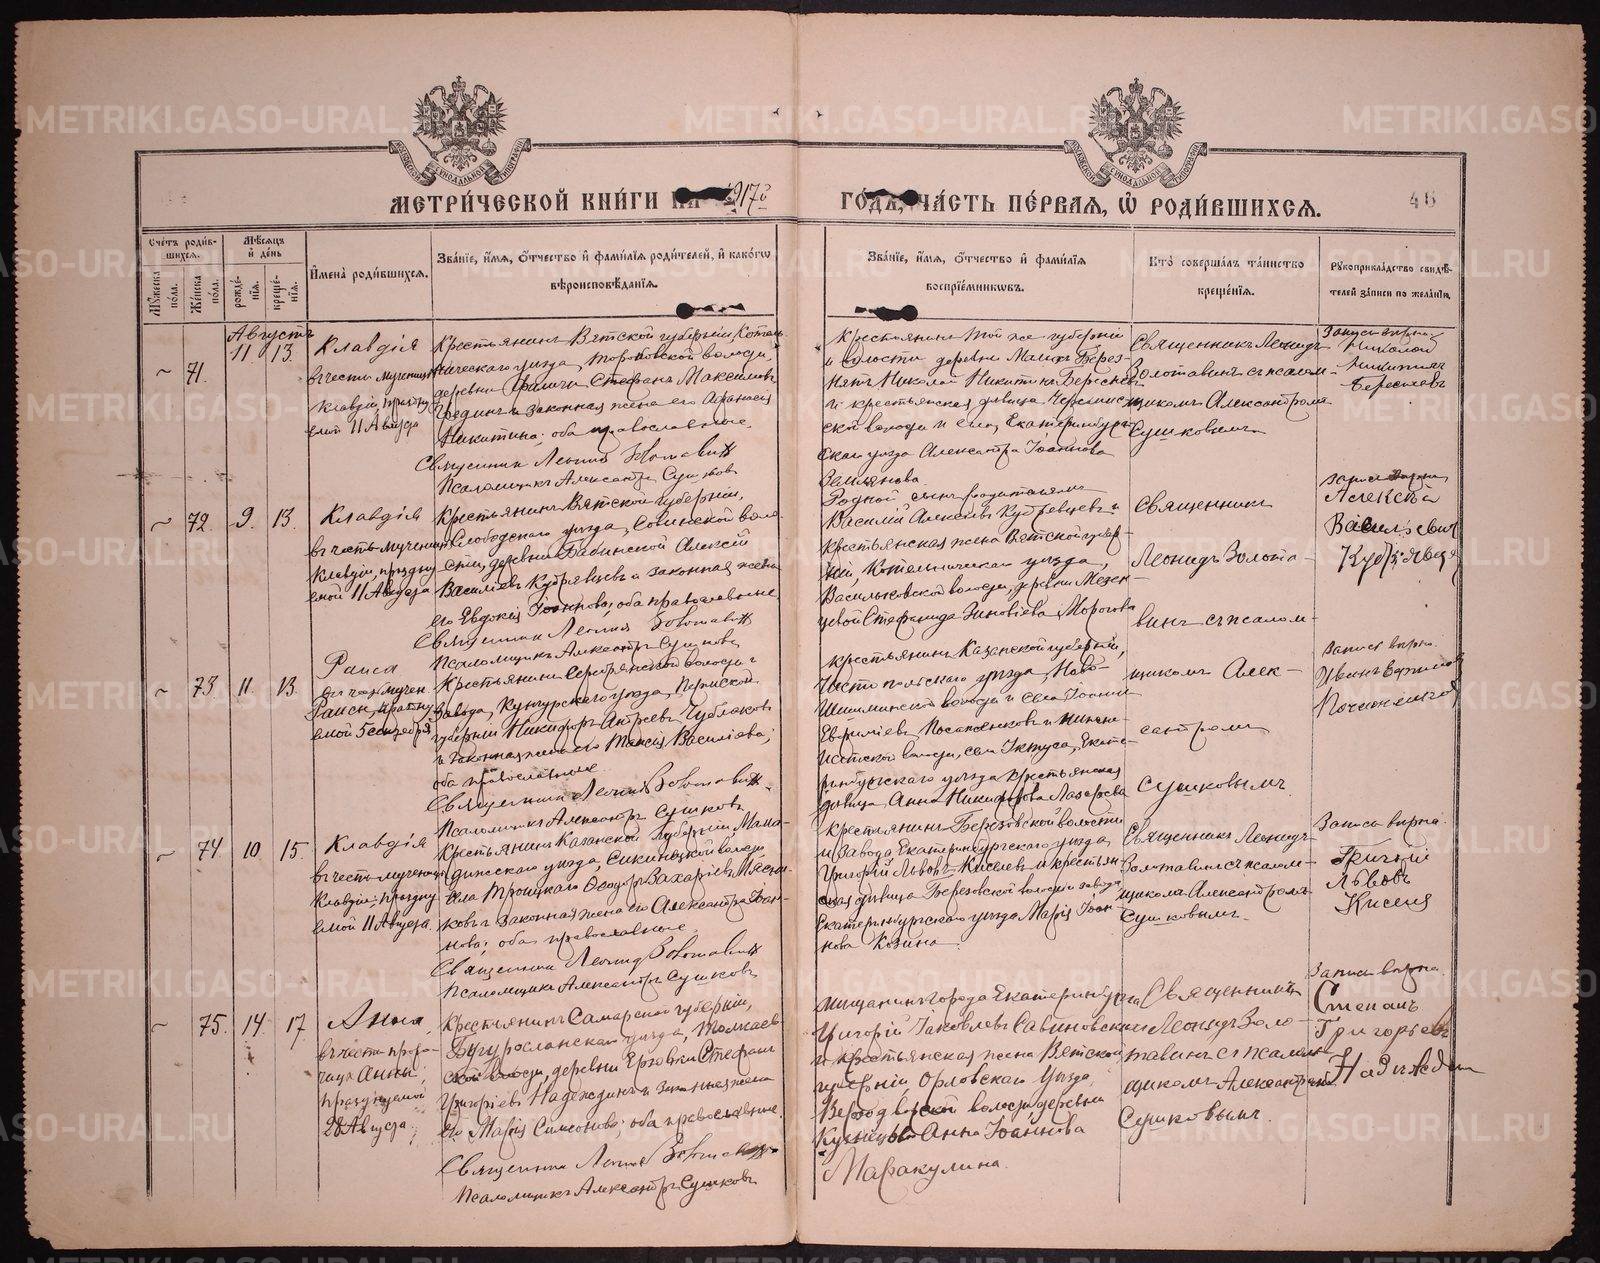 МЕТРИ́ЧЕСКОЙ КНИ́ГИ НА 1917 г
ГОДЪ, ЧА́СТЬ ПЕ́РВАЯ, Ѡ РОДИ́ВШИХСЯ.
46
Сче́тъ роди́в-
шихся.
Му́жеска по́ла.
Же́нска по́ла.
Мѣ́сяцъ и де́нь
рожде́-
нія.
креще́-
нія.
Имена̀ роди́вшихся.
Зва́ніе, и́мя, о́тчество и фами́лія роди́телей, и како́гѡ
вѣроисповѣ́данія.
Зва́ніе, и́мя, о́тчество и фами́лія
воспріе́мниковъ.
Кто̀ соверша́лъ та́инство
креще́нія.
Рукоприкла́дство свидѣ́-
телей за́писи по жела́нію.
Августъ
71.
11
13.
Клавдія
въ честь мученицы
Клавдіи, праздну
емой 11 Августа
Крестьянинъ Вятской губерніи, Котель-
ническаго уѣзда,
волости,
деревни
Стефанъ Максимовъ
и законная жена его
Никитина; оба православные.
Священникъ Леонидъ Золотавинъ
Псаломщикъ Александръ Сушковъ
Крестьянинъ той же губерніи
и волости деревни Малыхъ Берез-
Николай Никитинъ Береснев
и крестьянская дѣвица
ской волости и села, Екатеринбург-
скаго уѣзда Александра Іоаннова
Землянова.
Священникъ Леонидъ
Золотавинъ съ псалом-
щикомъ Александромъ
Сушковымъ
Запись вѣрна
Николай
Никитинъ
Бересневъ
72.
9.
13.
Клавдія
въ честь мученицы
Клавдіи, праздну
емой 11 Августа
Крестьянинъ Вятской губерніи,
Слободского уѣзда, Совинской воло-
сти, деревни Бабинской Алексѣй
Василіевъ Кудрявцевъ и законная жена
его Евдокія Іоаннова; оба православные.
Священникъ Леонидъ Золотавинъ
Псаломщикъ Александръ Сушковъ
Родной сынъ родителя
Василій Алексѣевъ Кудрявцевъ и
крестьянская жена Вятской губер-
ніи, Котельническаго уѣзда,
Васильковской волости, деревни Мезен-
цевой Стефанида Зиновіева Морозова
Священникъ
Леонидъ Золота-
винъ съ псалом-
щикомъ Алек-
сандромъ
Сушковымъ.
Запись вѣрна
Алексѣй
Васильевич
Кудрявцев
73.
11.
13.
Раиса
въ честь мучен.
Раисы, праздну
емой 5 сентября
Крестьянинъ Серебрянской волости и
завода, Кунгурскаго уѣзда, Пермской
губерніи Никифоръ Андреевъ Чудлаковъ
и законная жена его Таисія Василіева;
оба православные.
Священникъ Леонидъ Золотавинъ.
Псаломщикъ Александръ Сушковъ
Крестьянинъ Казанской губерніи,
Чистопольскаго уѣзда, Ново-
Шешминской волости и села Іоаннъ
Евфиміевъ
и
волости, села Іктуса, Екате-
ринбургскаго уѣзда крестьянская
дѣвица Анна Никифорова Лазарева
Запись вѣрна.
74.
10
15.
Клавдія
въ честь мученицы
Клавдіи, праздну
емой 11 Августа.
Крестьянинъ Казанской губерніи, Мама-
дышскаго уѣзда,
волости,
села Троицкаго Ѳеодоръ Захаріевъ Мясни-
ковъ и законная жена его Александра Іоан-
нова; оба православные.
Священникъ Леонидъ Золотавинъ
Псаломщикъ Александръ Сушковъ
Крестьянинъ Березовской волости
и завода Екатеринбургскаго уѣзда,
Григорій Львовъ Киселевъ и крестьян-
ская дѣвица Березовской волости и завода
Екатеринбургскаго уѣзда Марія Іоан-
нова Козина.
Священникъ Леонидъ
Золотавинъ съ псалом-
щикомъ Александромъ
Сушковымъ.
Запись вѣрна.
Григорій
Львовъ
Кисель
75.
14.
17.
Анна,
въ честь проро-
чицы Анны;
празднуемой
28 Августа
Крестьянинъ Самарской губерніи,
Бугурусланскаго уѣзда, Толкаев-
ской волости, деревни Ерзовки Стефанъ
Григоріевъ Надеждинъ и законная жена
его Марія Симеонова; оба православные.
Священникъ Леонидъ Золотавинъ
Псаломщикъ Александръ Сушковъ
Мѣщанинъ города Екатеринбурга
Григорій Іаковлевъ Савиновскій
и крестьянская жена Вятской
губерніи, Орловскаго уѣзда,
Верходворской волости деревни
Кузнецы Анна Іоаннова
Маракулина.
Священникъ
Леонидъ Золо-
тавинъ съ псалом-
щикомъ Александромъ
Сушковымъ.
Запись вѣрна.
Степанъ
Григорьевъ
Надеждин